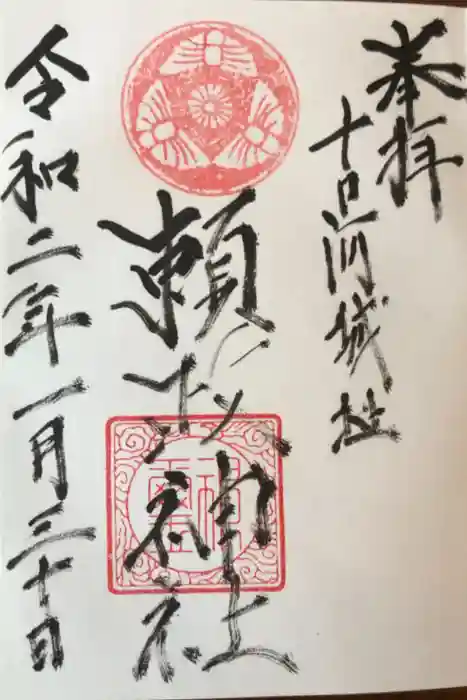 奉拝
古河城址
頼政神社
令和二年一月三十日